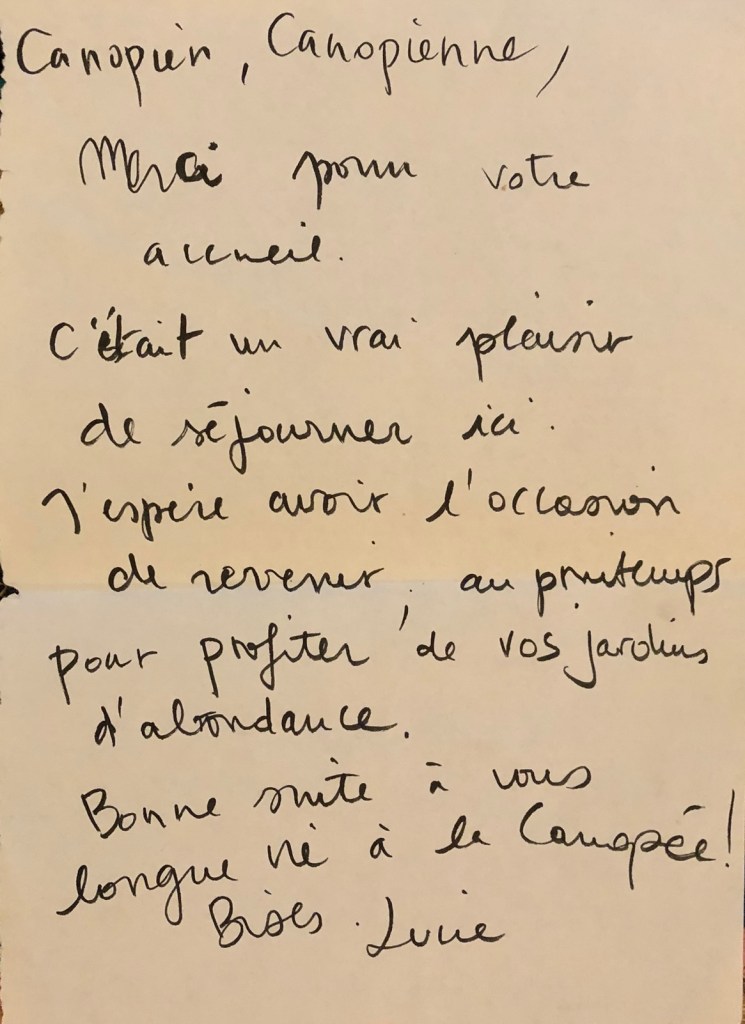 Canopien, Canopienne,
Merci pour votre
accueil.
C'était un vrai plaisir
de séjourner ici.
J'espère avoir l'occasion
de revenir, au printemps
pour profiter de vos jardins
d'abondance.
Bonne suite à vous
longue vie à la Canopée!
Bises. Lucie